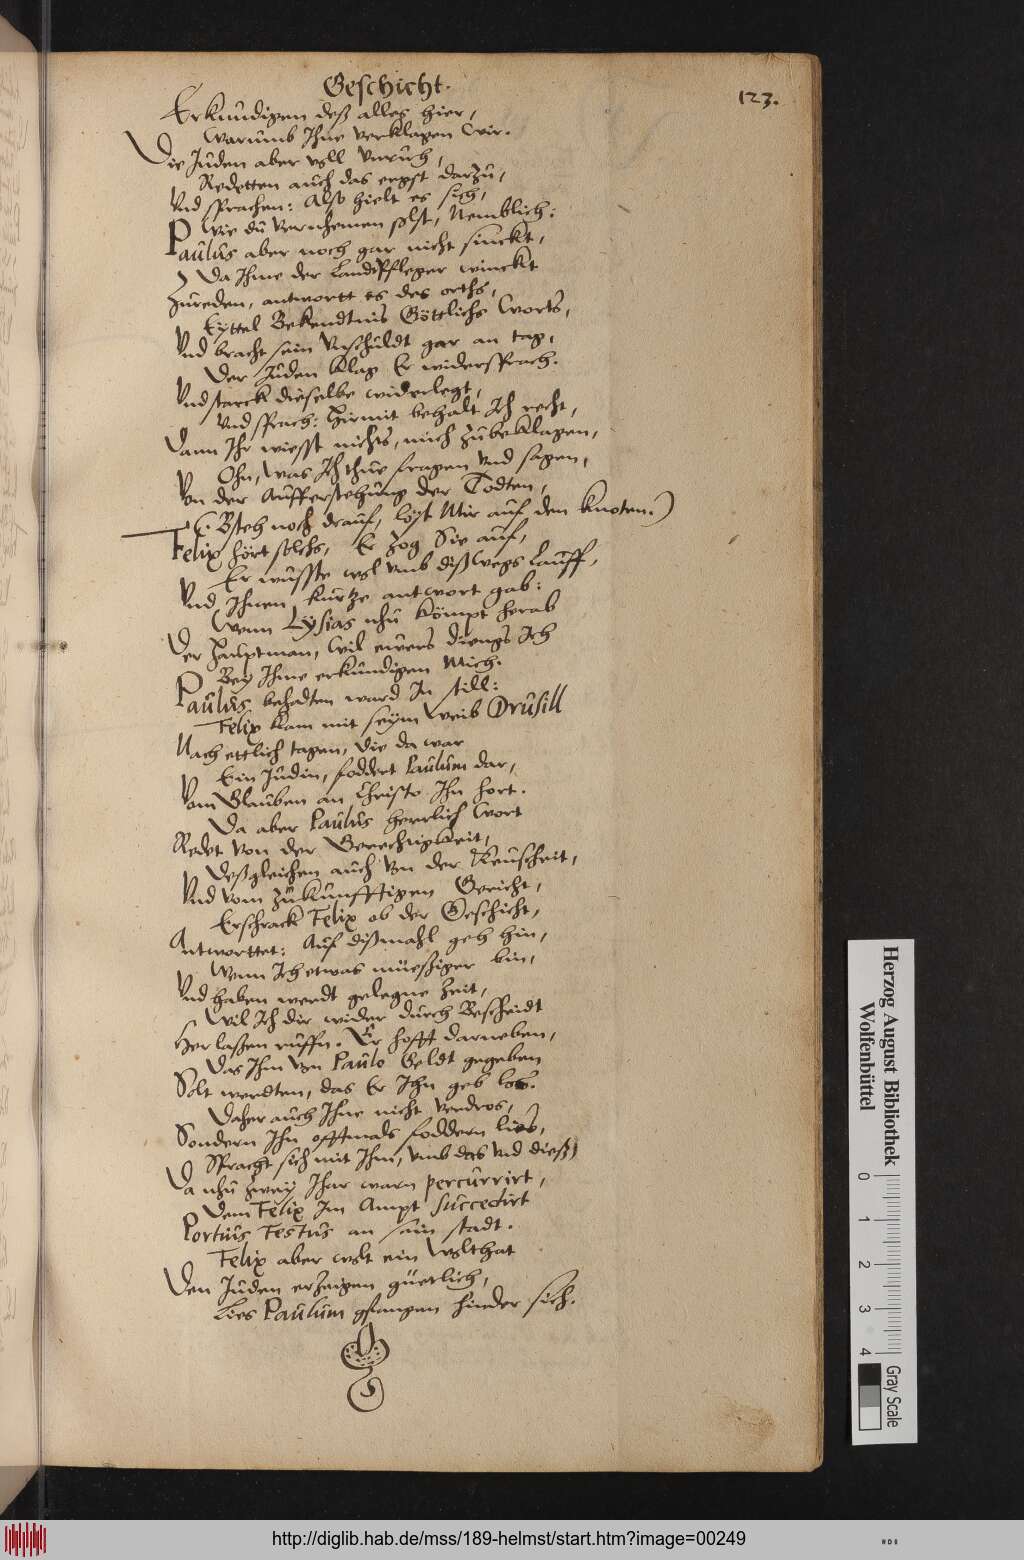 Geschicht.
123.
Erkundigen deß alles hier,
Warumb Ihne verklagen Wir.
Die Juden aber voll Unruh,
Redetten auch das ergst darzu,
Und sprachen: Also hielt es sich,
Wie du vernhemen solst, Nemblich:
Paulus aber noch gar nicht sinckt,
Da Ihme der Landtpfleger winckt
Zureden, antwortt es des orths,
Eyttel Bekendtnis Göttlichs Worts,
Und bracht sein Unschuldt gar an tag,
Der Juden Klag Er widersprach.
Und starck dieselbe widerlegt,
Und sprach: Hirmit behalt Ich recht,
Dann Ihr wiesst nichts, mich zubeklagen,
Ohn, was Ich thue fragen Und sagen,
Von der Aufferstehung der Todten,
(Bsteh noch drauf, löst Mir auf den Knoten.)
Felix hört solchs, Er zog Sie auf,
Er wusste wol umb diß Wegs Lauff,
Und Ihnen kurtze antwort gab:
Wenn Lysias nhu kömpt herab
Der Hauptman, Wil ewers dinngs Ich
Bey Ihme erkundigen Mich.
Paulus behadten ward In still:
Felix kam mit seym Weib Drusill
Nach ettlich tagen, die da war
Ein Judin, foddert Paulum dar,
Vom Glauben an Christo Ihn hort.
Da aber Paulus herrlich Wort
Redet von der Gerechtigkeit,
Deßgleichen auch von der Keuscheit,
Und vom zukunfftigen Gericht,
Erschrack Felix ob der Geschicht,
Antworttet: Auf dißmahl geh hin,
Wenn Ich etwas müeßiger bin,
Und haben werdt gelegne Zeit,
Wil Ich dir wider durch Bescheidt
Her laßen ruffn. Er hofft darneben,
Das Ihm von Paulo Geldt gegeben
Solt werdten, das Er Ihn geb los.
Daher auch Ihne nicht verdros,
Sondern Ihn offtmals foddern lies,
Spracht sich mit Ihm, umb das und dieß,
Da nhu zwey Ihar warn percurrirt,
Dem Felix Im Ampt succedirt
Portius Festus an sein stadt.
Felix aber wolt ein Wolthat
Den Juden erzeigen güetlich,
Lies Paulum gfangen hinder sich.
Herzog August Bibliothek
Wolfenbüttel
0 1 2 3 4
Gray Scale
http://diglib.hab.de/mss/189-helmst/start.htm?image=00249